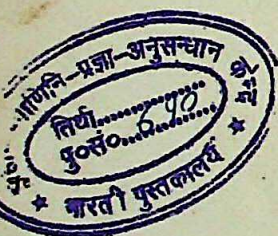 पाणिनि-प्रज्ञा-अनुसन्धान
तिथी..............
पु०सं०..............
★ भारती पुस्तकालय ★